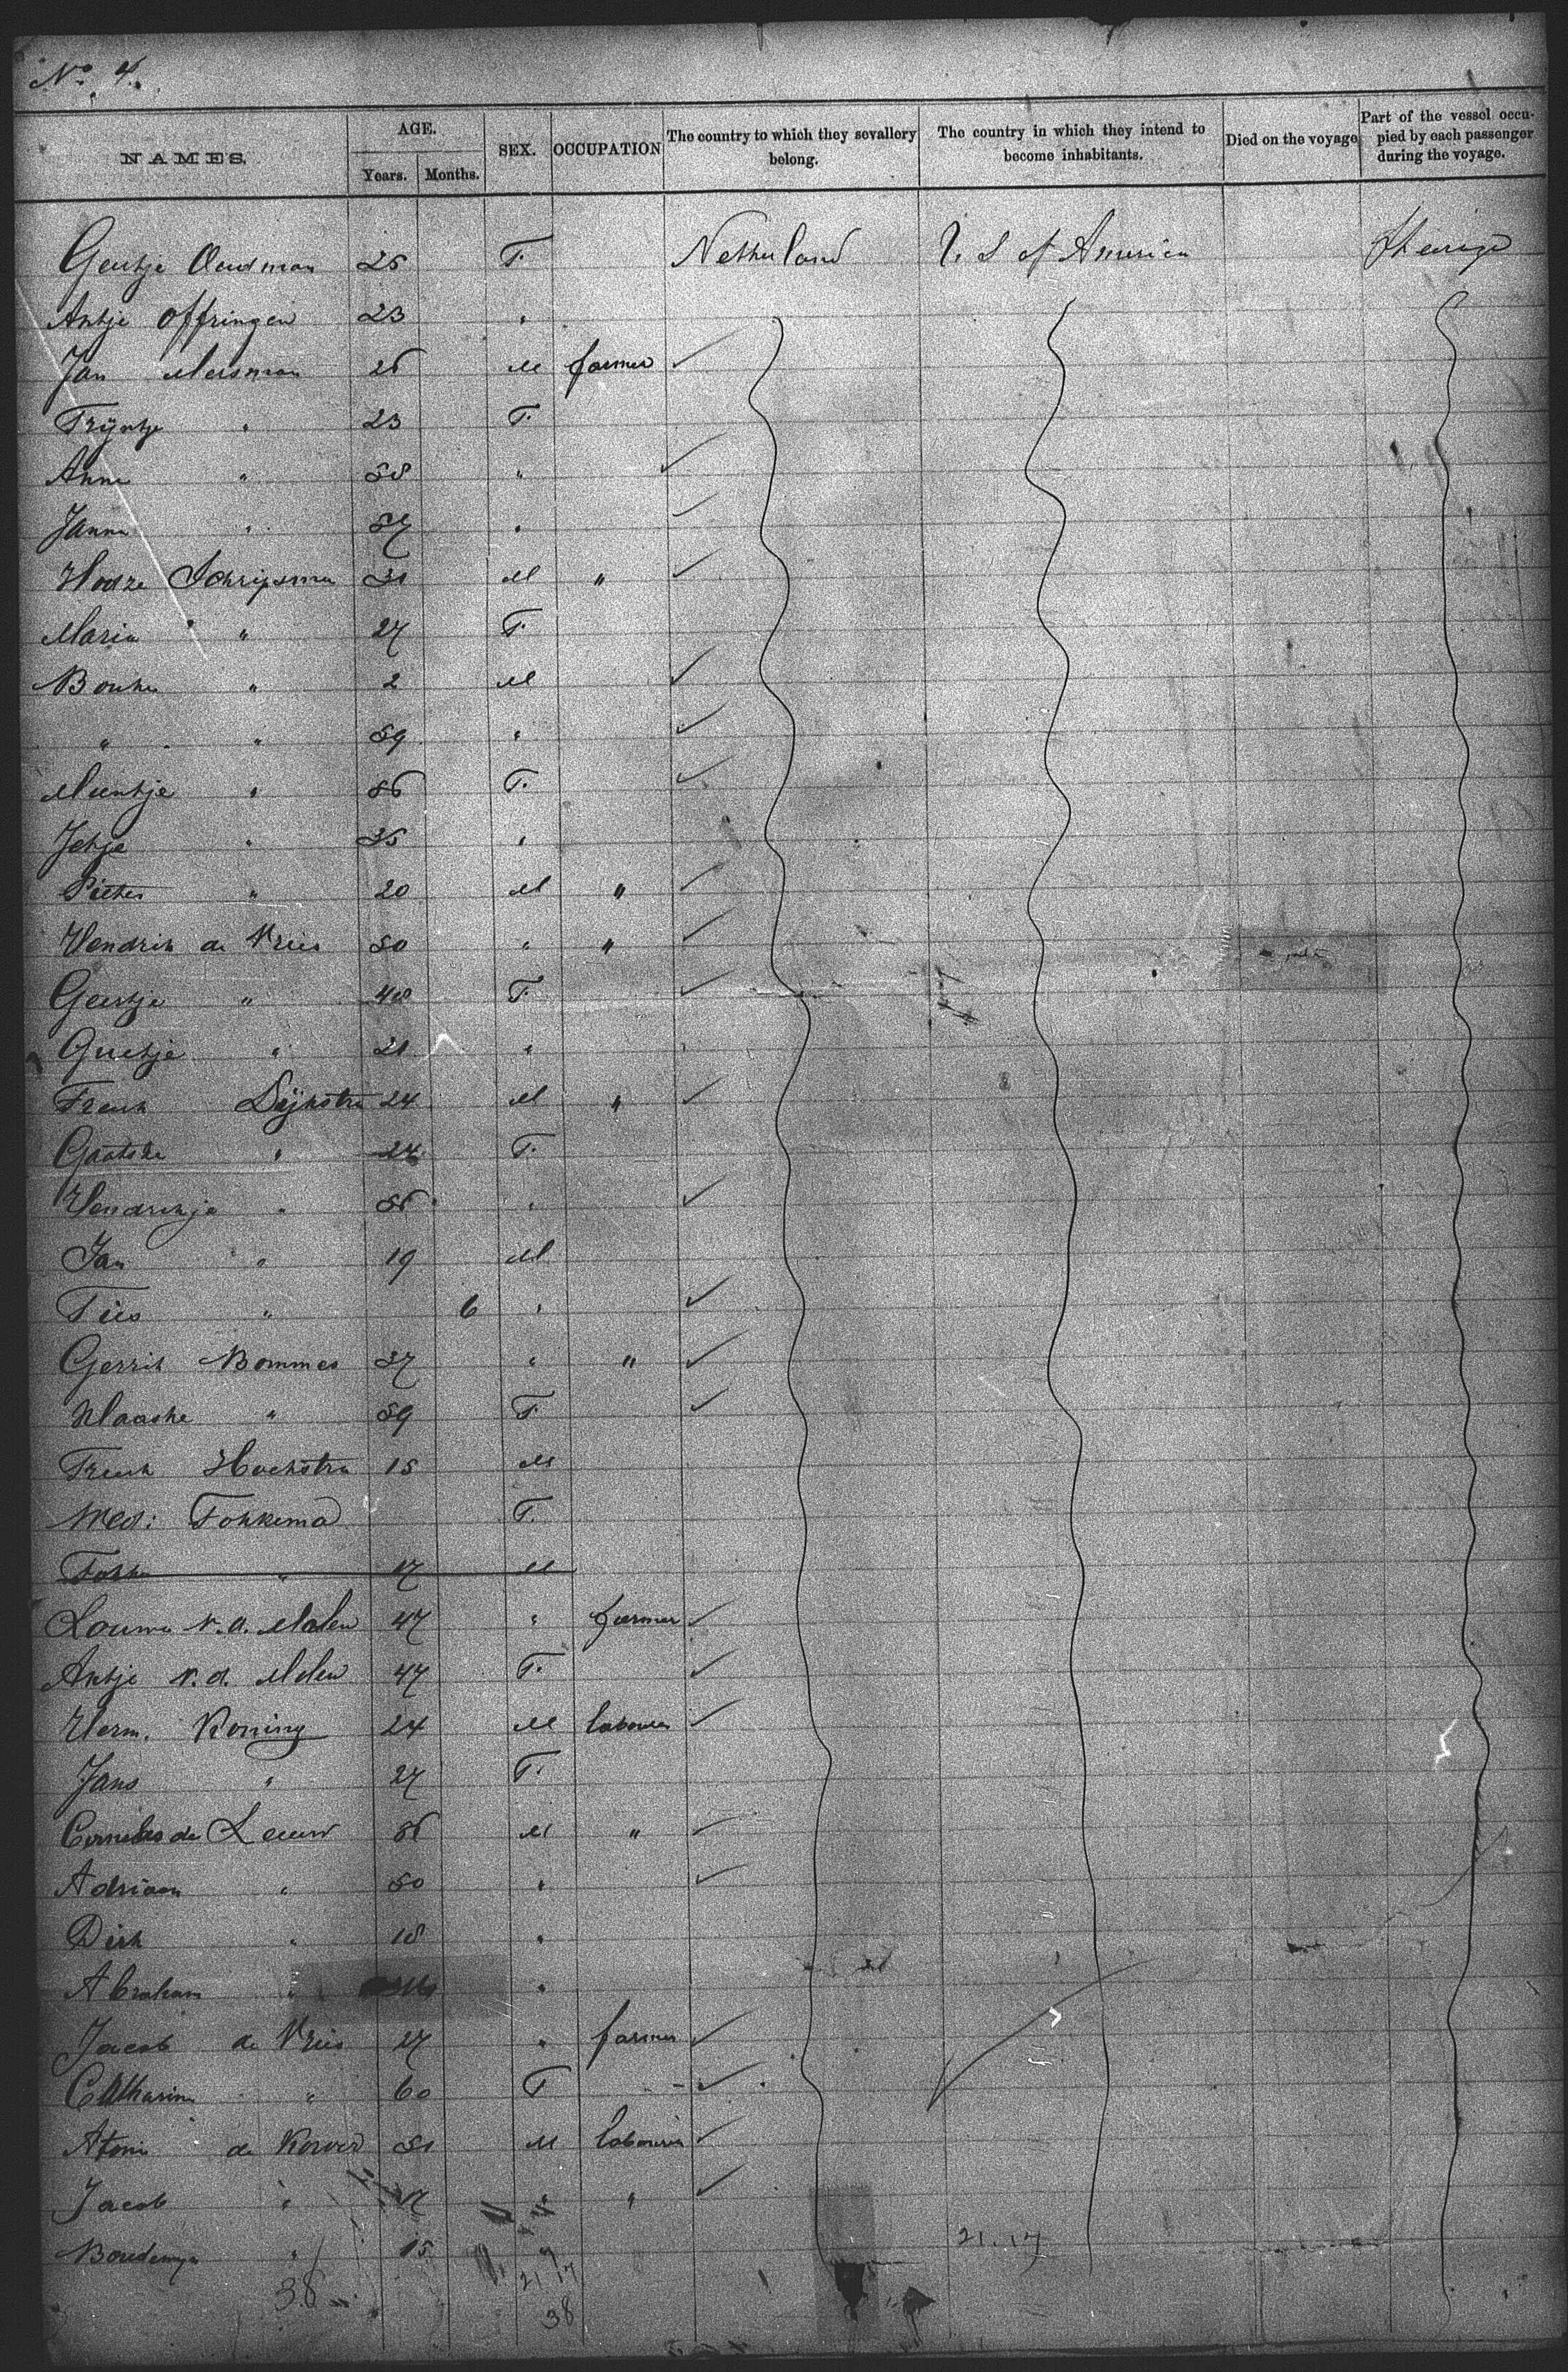 No. 4.
NAMES.
AGE.
Years.
Months.
SEX.
OCCUPATION
The country to which they sevallery belong.
The country in which they intend to become inhabitants.
Died on the voyage
Part of the vessel occupied by each passenger during the voyage.
Geertje Oudman 25 F. Netherland U. S. of America Steerage
Antje Offringen 23 "
Jan Meisman 26 M farmer
Trijntje " 23 F.
Anna " 58 "
Janna " 57 "
Schripsma 31 M "
Maria " 27 F.
Bouke " 2 M
" " 59 "
Meentje " 56 F.
Jetje " 35 "
Pieter " 20 M "
Hendrik de Vries 50 " "
Geertje " 48 F.
Grietje " 21 "
Freerk Dijkstra 24 M "
Gaatske " 24 F.
Hendrikje " 56 "
Jan " 19 M
Ties " 6 "
Gerrit Bommes 37 " "
Klaaske " 59 F.
Freerk Hoekstra 15 M
Wed: Fokkema F.
Fokke " 17 M
Louwe v. d. Molen 47 " farmer
Antje v. d. Molen 47 F.
Herm. Koning 24 M labourer
Jans " 27 F.
Cornelis de Leeuw 56 M "
Adriaan " 50 "
Dirk " 18 "
Abraham " "
Jacob de Vries 27 " farmer
Catharina " 60 F
de Korver 51 M labourer
Jacob " 17 " "
" 15 "
38
21 17
38
21. 17